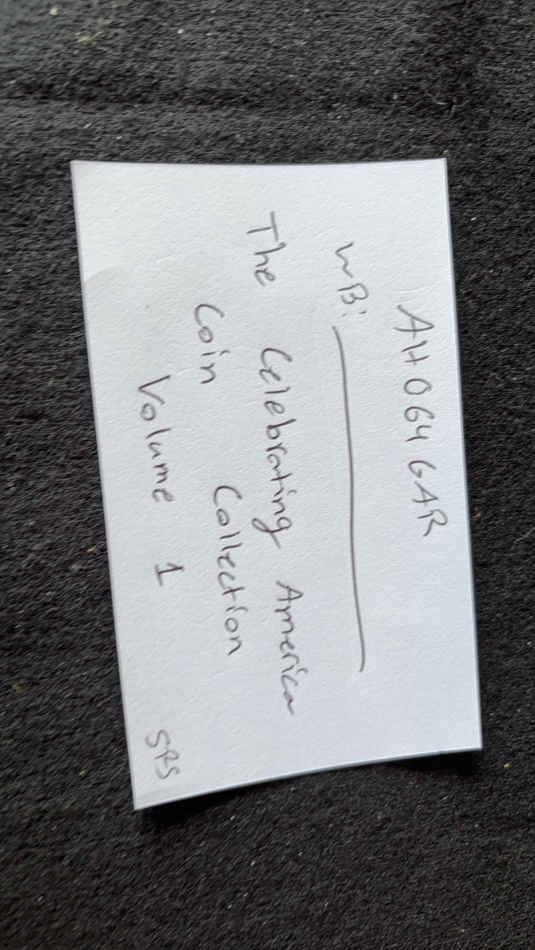 AH064GAR
WB:
The Celebrating America
Coin Collection
Volume 1
SPS